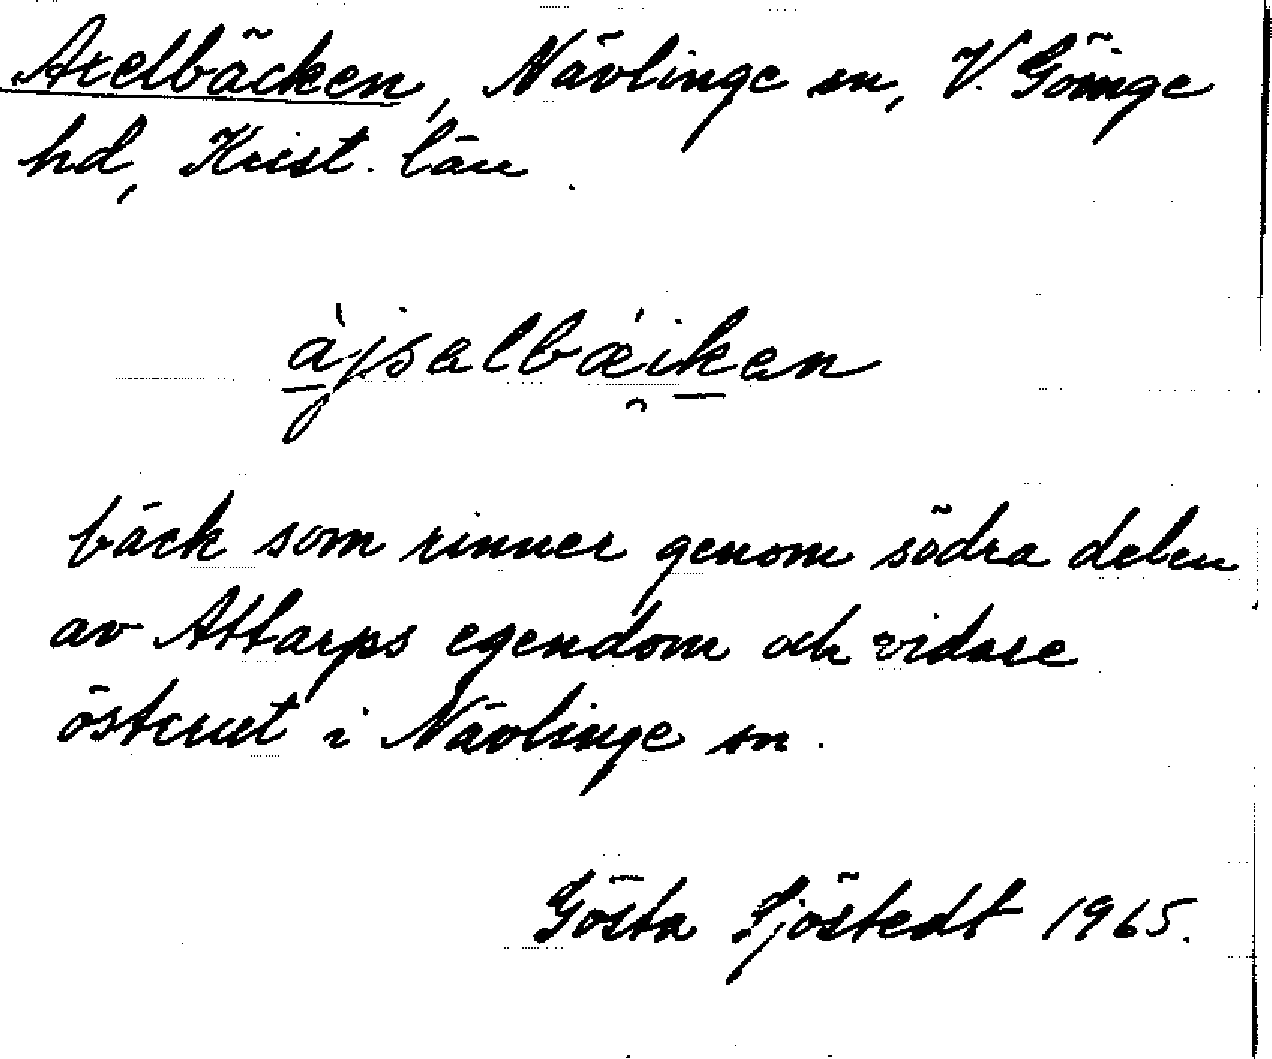 Axelbäcken, Nävlinge sn, V. Göinge
hd, Krist. län.
àjsalbǽ̯ikan
bäck som rinner genom södra delen
av Attarps egendom och vidare
österut i Nävlinge sn.
Gösta Sjöstedt 1965.